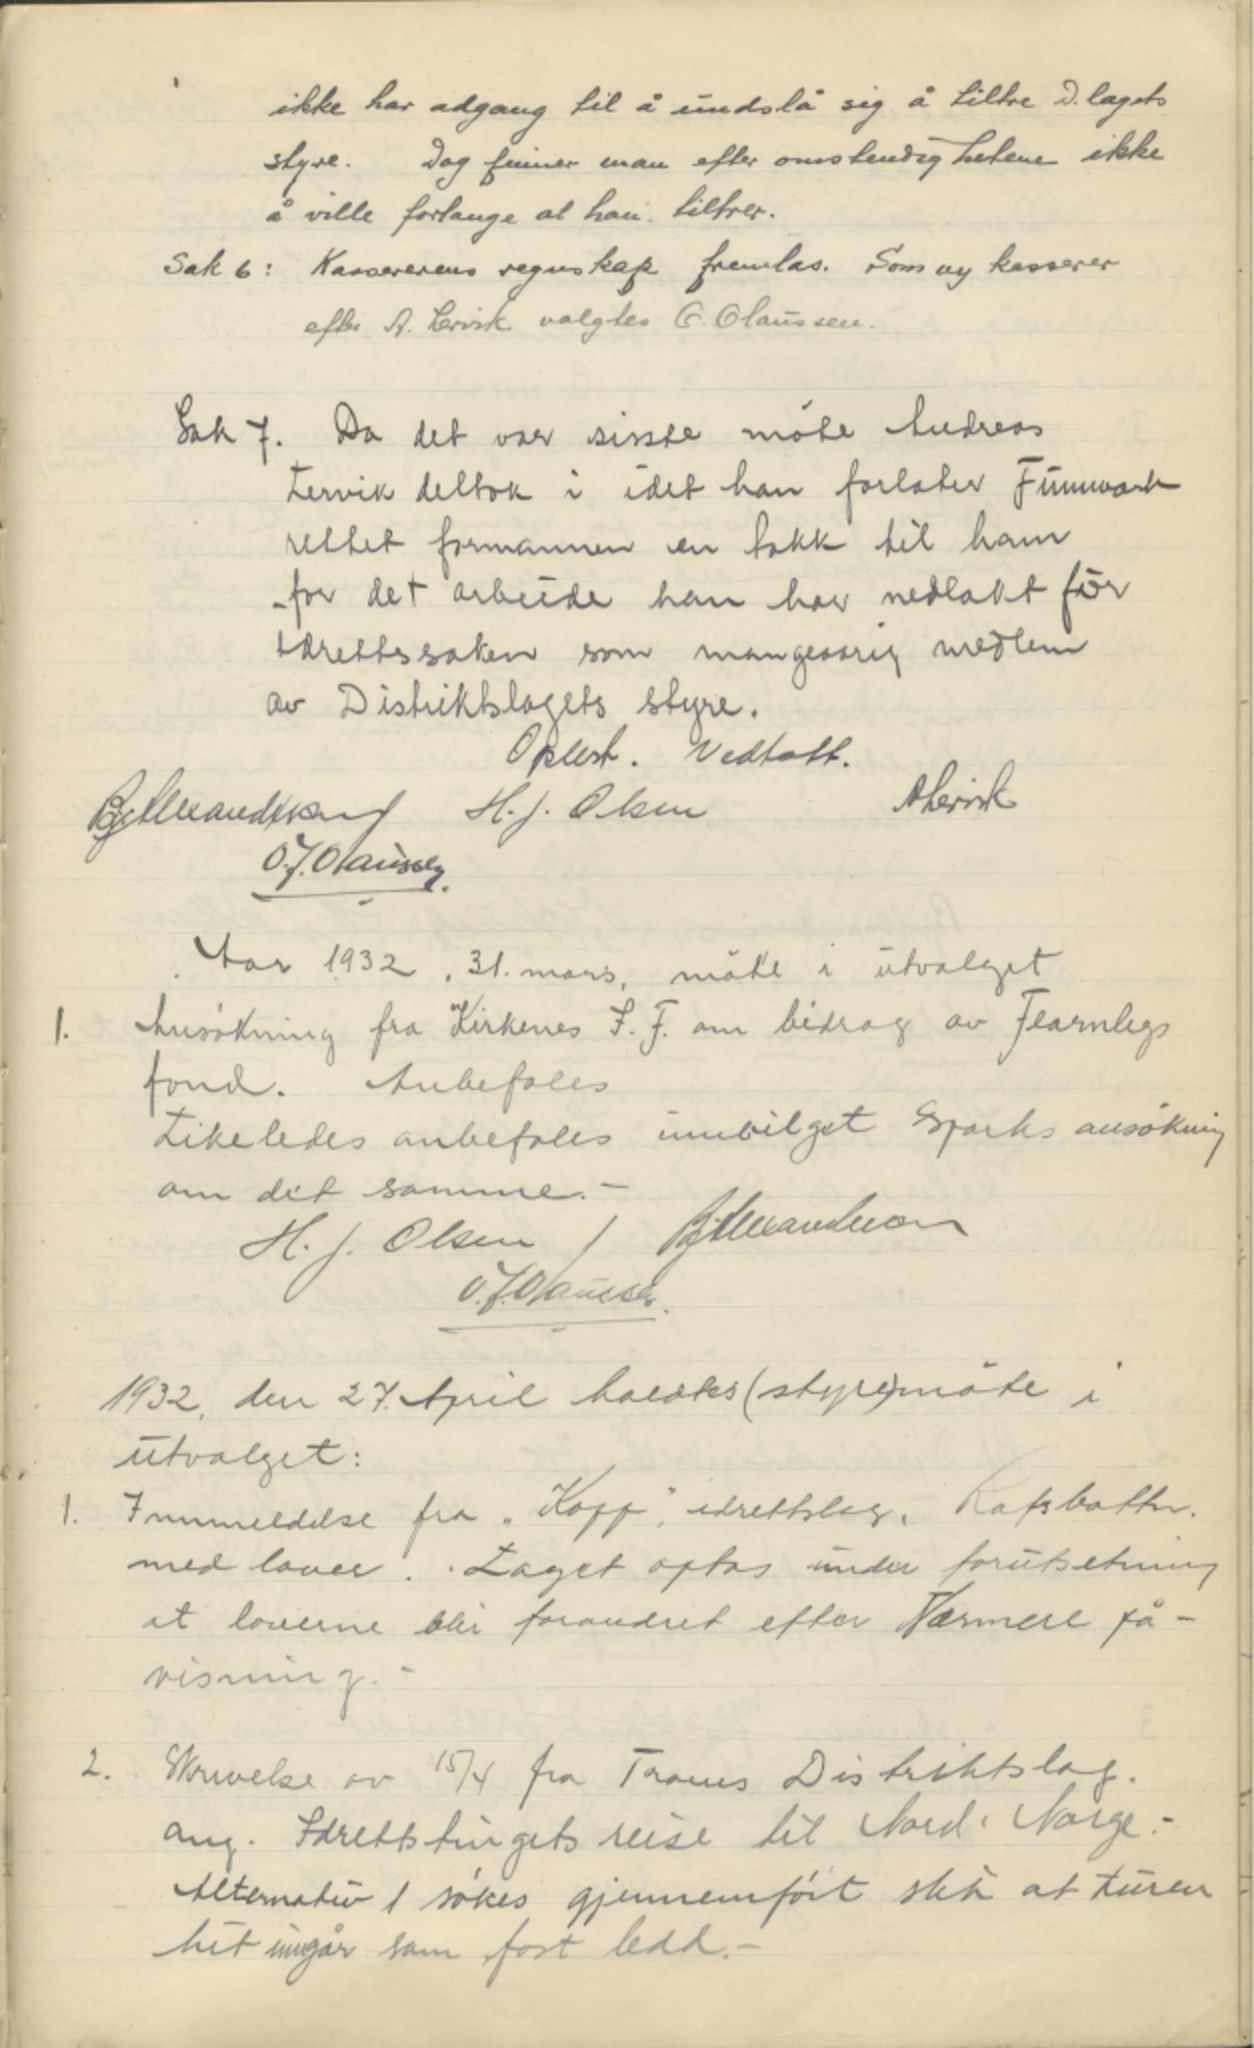 ikke har adgang til å undslå sig å tiltre D.lagets
styre. Dog finner man efter omstendighetene ikke
å ville forlange at han tiltrer.
Sak 6: Kassererens regnskap fremlas. Som ny kasserer
efter A. Lervik valgtes O. Olaussen.
Sak 7. Da det var sisste möte Andreas
Lervik deltok i idet han forlater Finnmark
rettet formannen en takk til ham
for det arbeide han har nedlakt for
Idrettssaken som mangeaarig medlem
av Distriktslagets styre.
Oplest. Vedtatt.
Bj. Alexandersen H. J. Olsen A Lervik
O. J. Olaussen.
Aar 1932, 31. mars, möte i utvalget
1. Ansökning fra Kirkenes I. F. om bidrag av Fearnleys
fond. Anbefales
Likeledes anbefales innvilget Sparks ansökning
om det samme.-
H. J. Olsen / Bj. Alexandersen
O. J. Olaussen.
1932, den 27. April holdtes (styre)möte i
utvalget:
1. Innmeldelse fra "Kopp", idrettslag,
med lover. Laget optas under forutsetning
at loverne blir forandret efter Nærmere på-
visning.-
2. Skrivelse av 15/4 fra Troms Distriktslag.
ang. Idrettstingets reise til Nord-Norge.-
Alternativ 1 sökes gjennemfört slik at turen
hit ingår som fast ledd.-